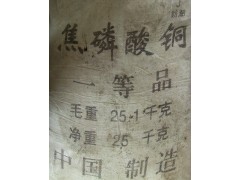 焦磷酸铜
一等品
毛重 25·1 千克
净重 25 千克
中国制造